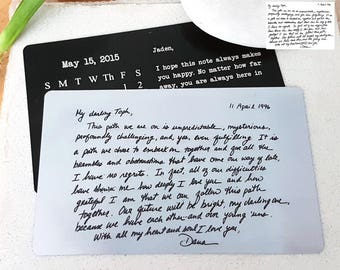 May 15, 2015
S M T W Th F S
1 2
Jaden,
I hope this note always makes
you happy. No matter how far
away, you are always here in
11 April 1996
My darling Toph,
This path we are on is unpredictable, mysterious,
profoundly challenging, and, yes, even fulfilling. It is
a path we chose to embark on together and for all the
brambles and obstructions that have come our way of late,
I have no regrets. In fact, all of our difficulties
have shown me how deeply I love you and how
grateful I am that we can follow this path
together. Our future will be bright, my darling one,
because we have each other and our young 'uns.
With all my heart and soul I love you,
Dana